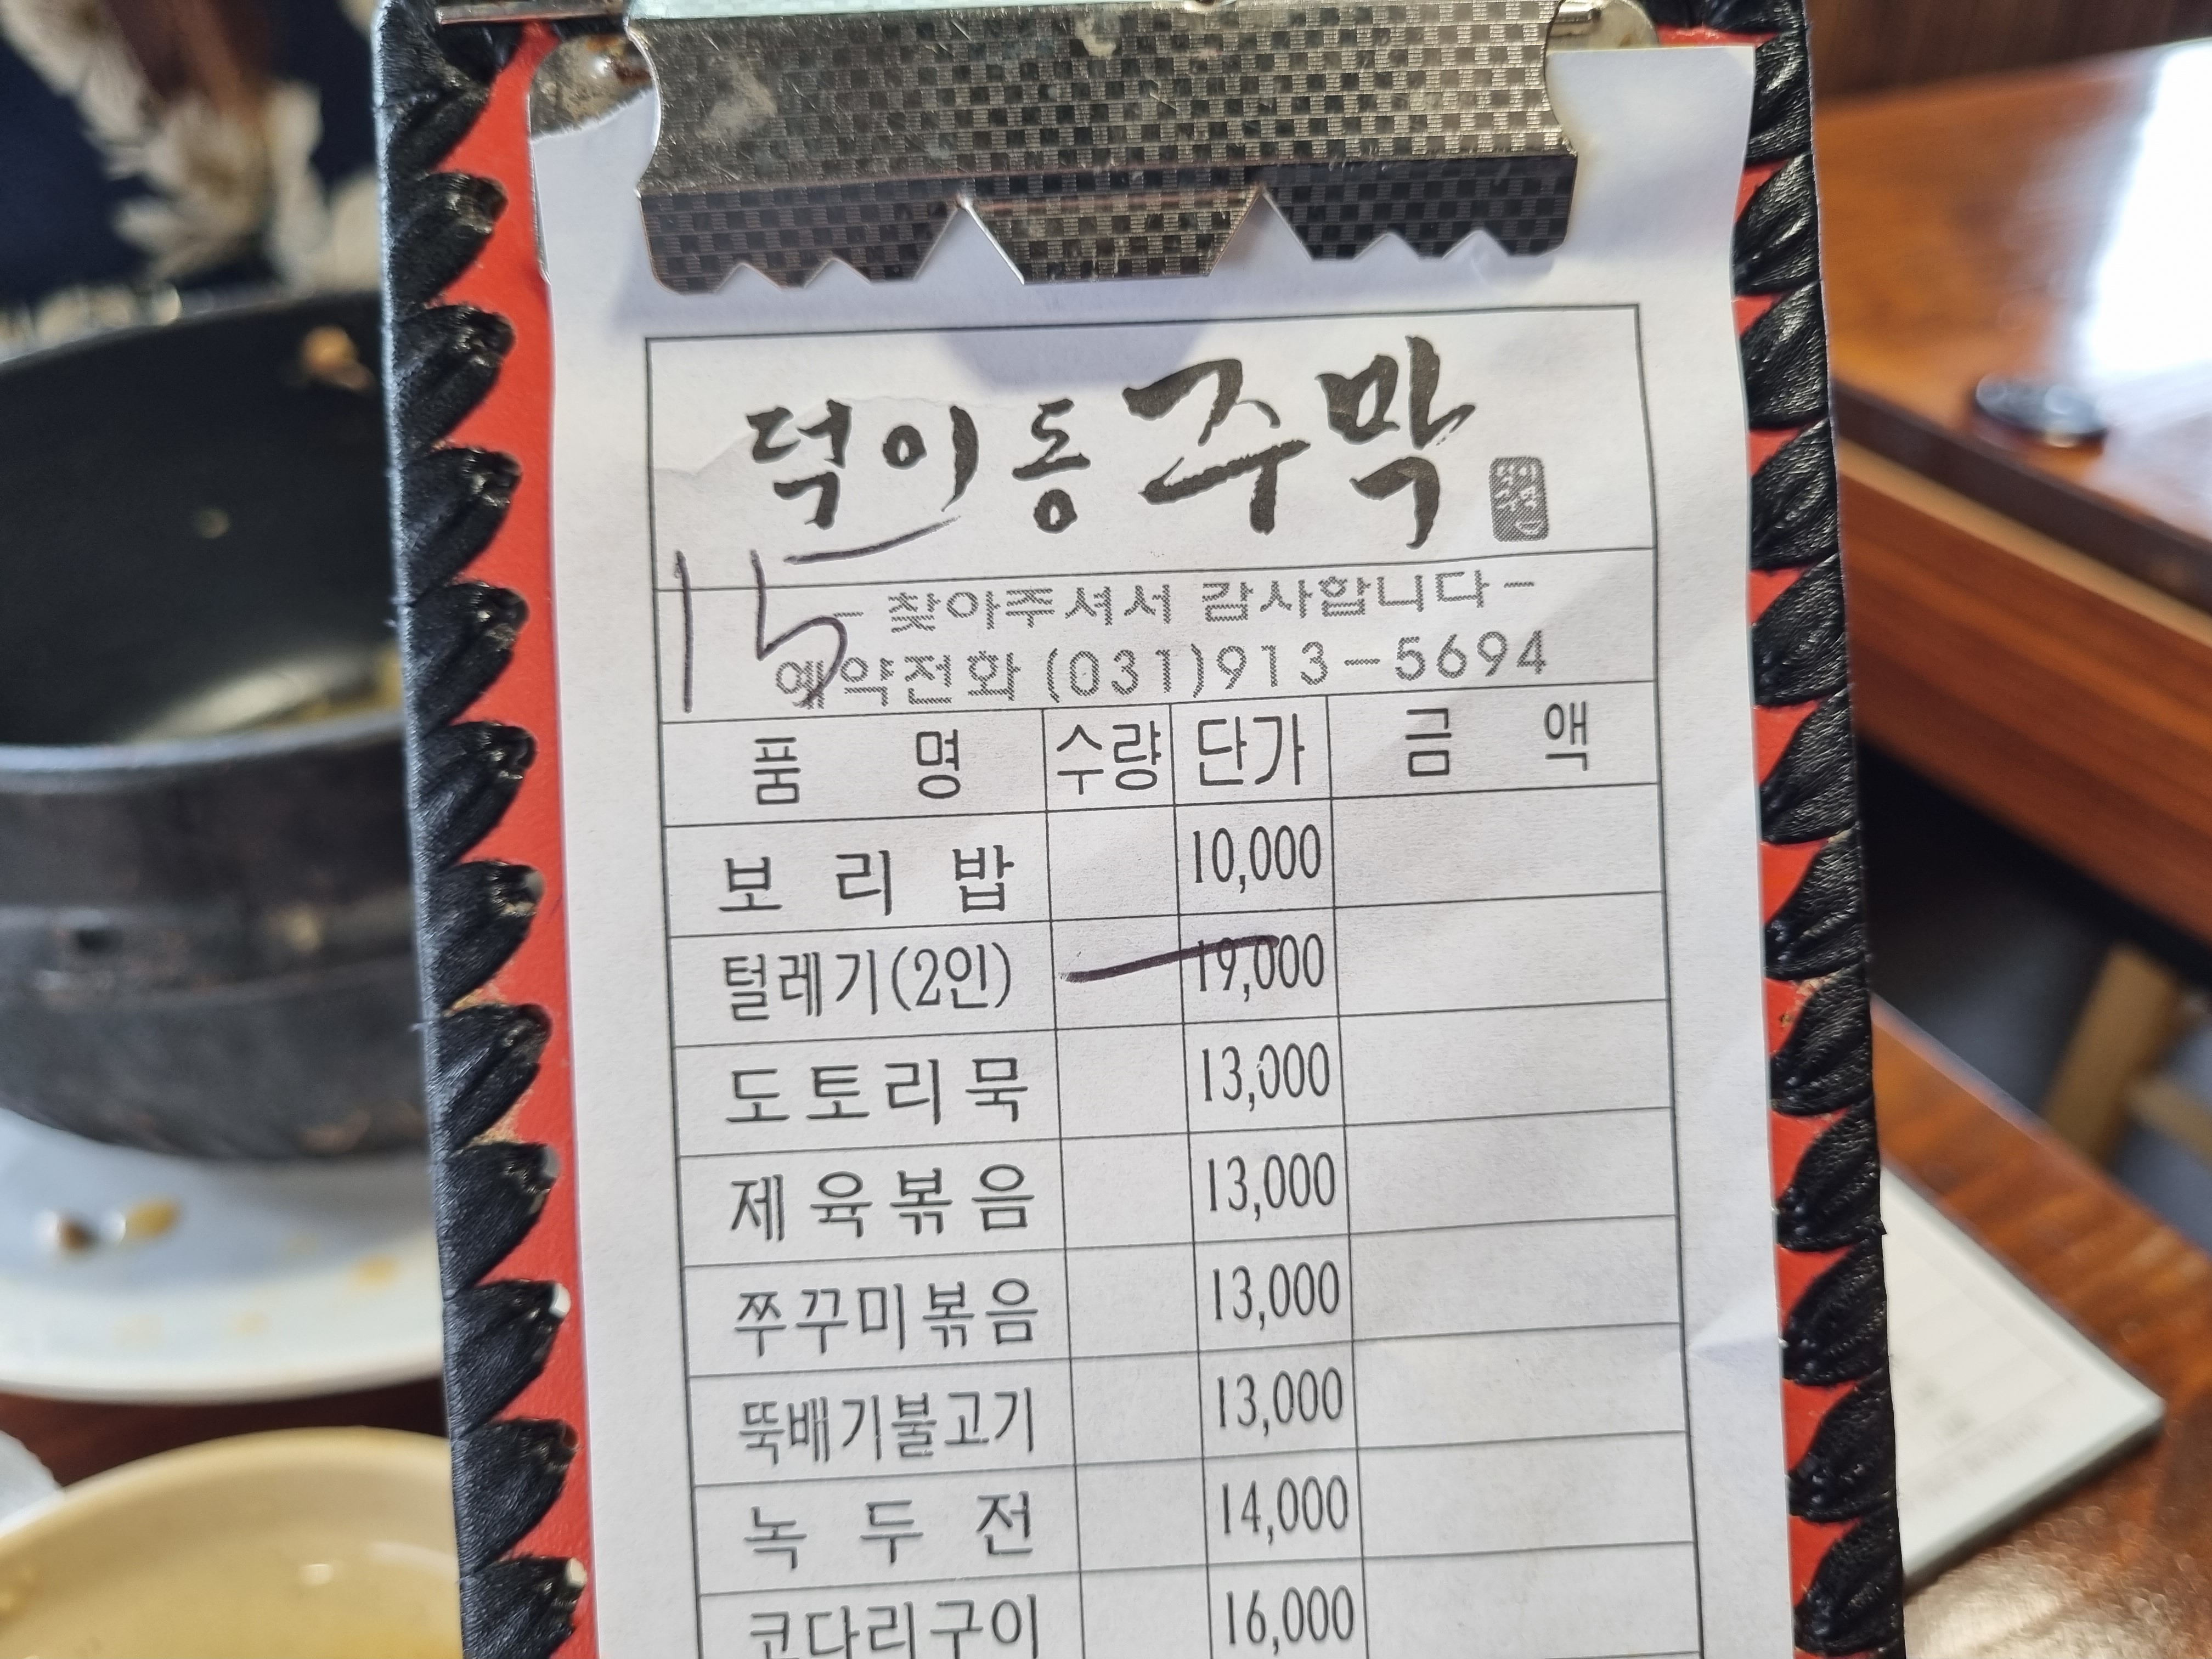 덕이동 주막
15
- 찾아주셔서 감사합니다 -
예약전화 (031)913-5694
품명 수량 단가 금액
보리밥 10,000
털레기(2인) 19,000
도토리묵 13,000
제육볶음 13,000
쭈꾸미볶음 13,000
뚝배기불고기 13,000
녹두전 14,000
코다리구이 16,000